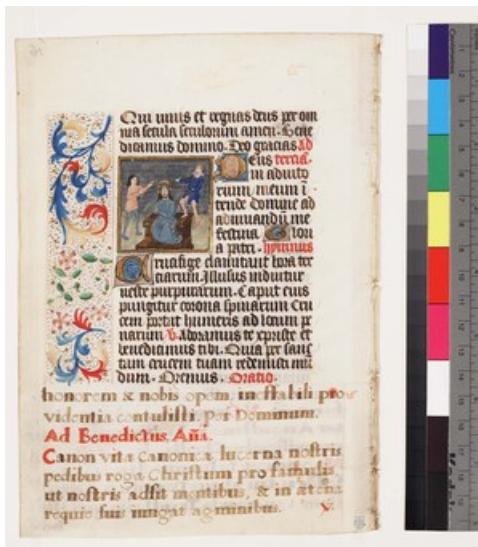 Qui vivis et regnas deus per om
nia secula seculorum amen. Bene
dicamus domino. Deo gracias Ad
Deus tercia.
in adiuto
rium meum i
tende domine ad
adiuuandu me
festina. Glori
a patri. hymnus
Crucifige clamitant hora ter
ciarum Illusus induitur
veste purpurarum. Caput eius
pungitur corona spinarum Cru
cem portat humeris ad locum pe
narum V. Adoramus te xpriste et
benedicimus tibi. Quia per sanc
tam crucem tuam redemisti mū
dum. Oremus. Oratio.
honorem & nobis opem, ineffabili pro
videntia contulisti. Per Dominum.
Ad Benedictus. Aña.
Canon vita Canonica, lucerna nostris
pedibus roga Christum pro famulis,
ut nostris adsit mentibus, & in æterna
requie suis iungat agminibus. V.